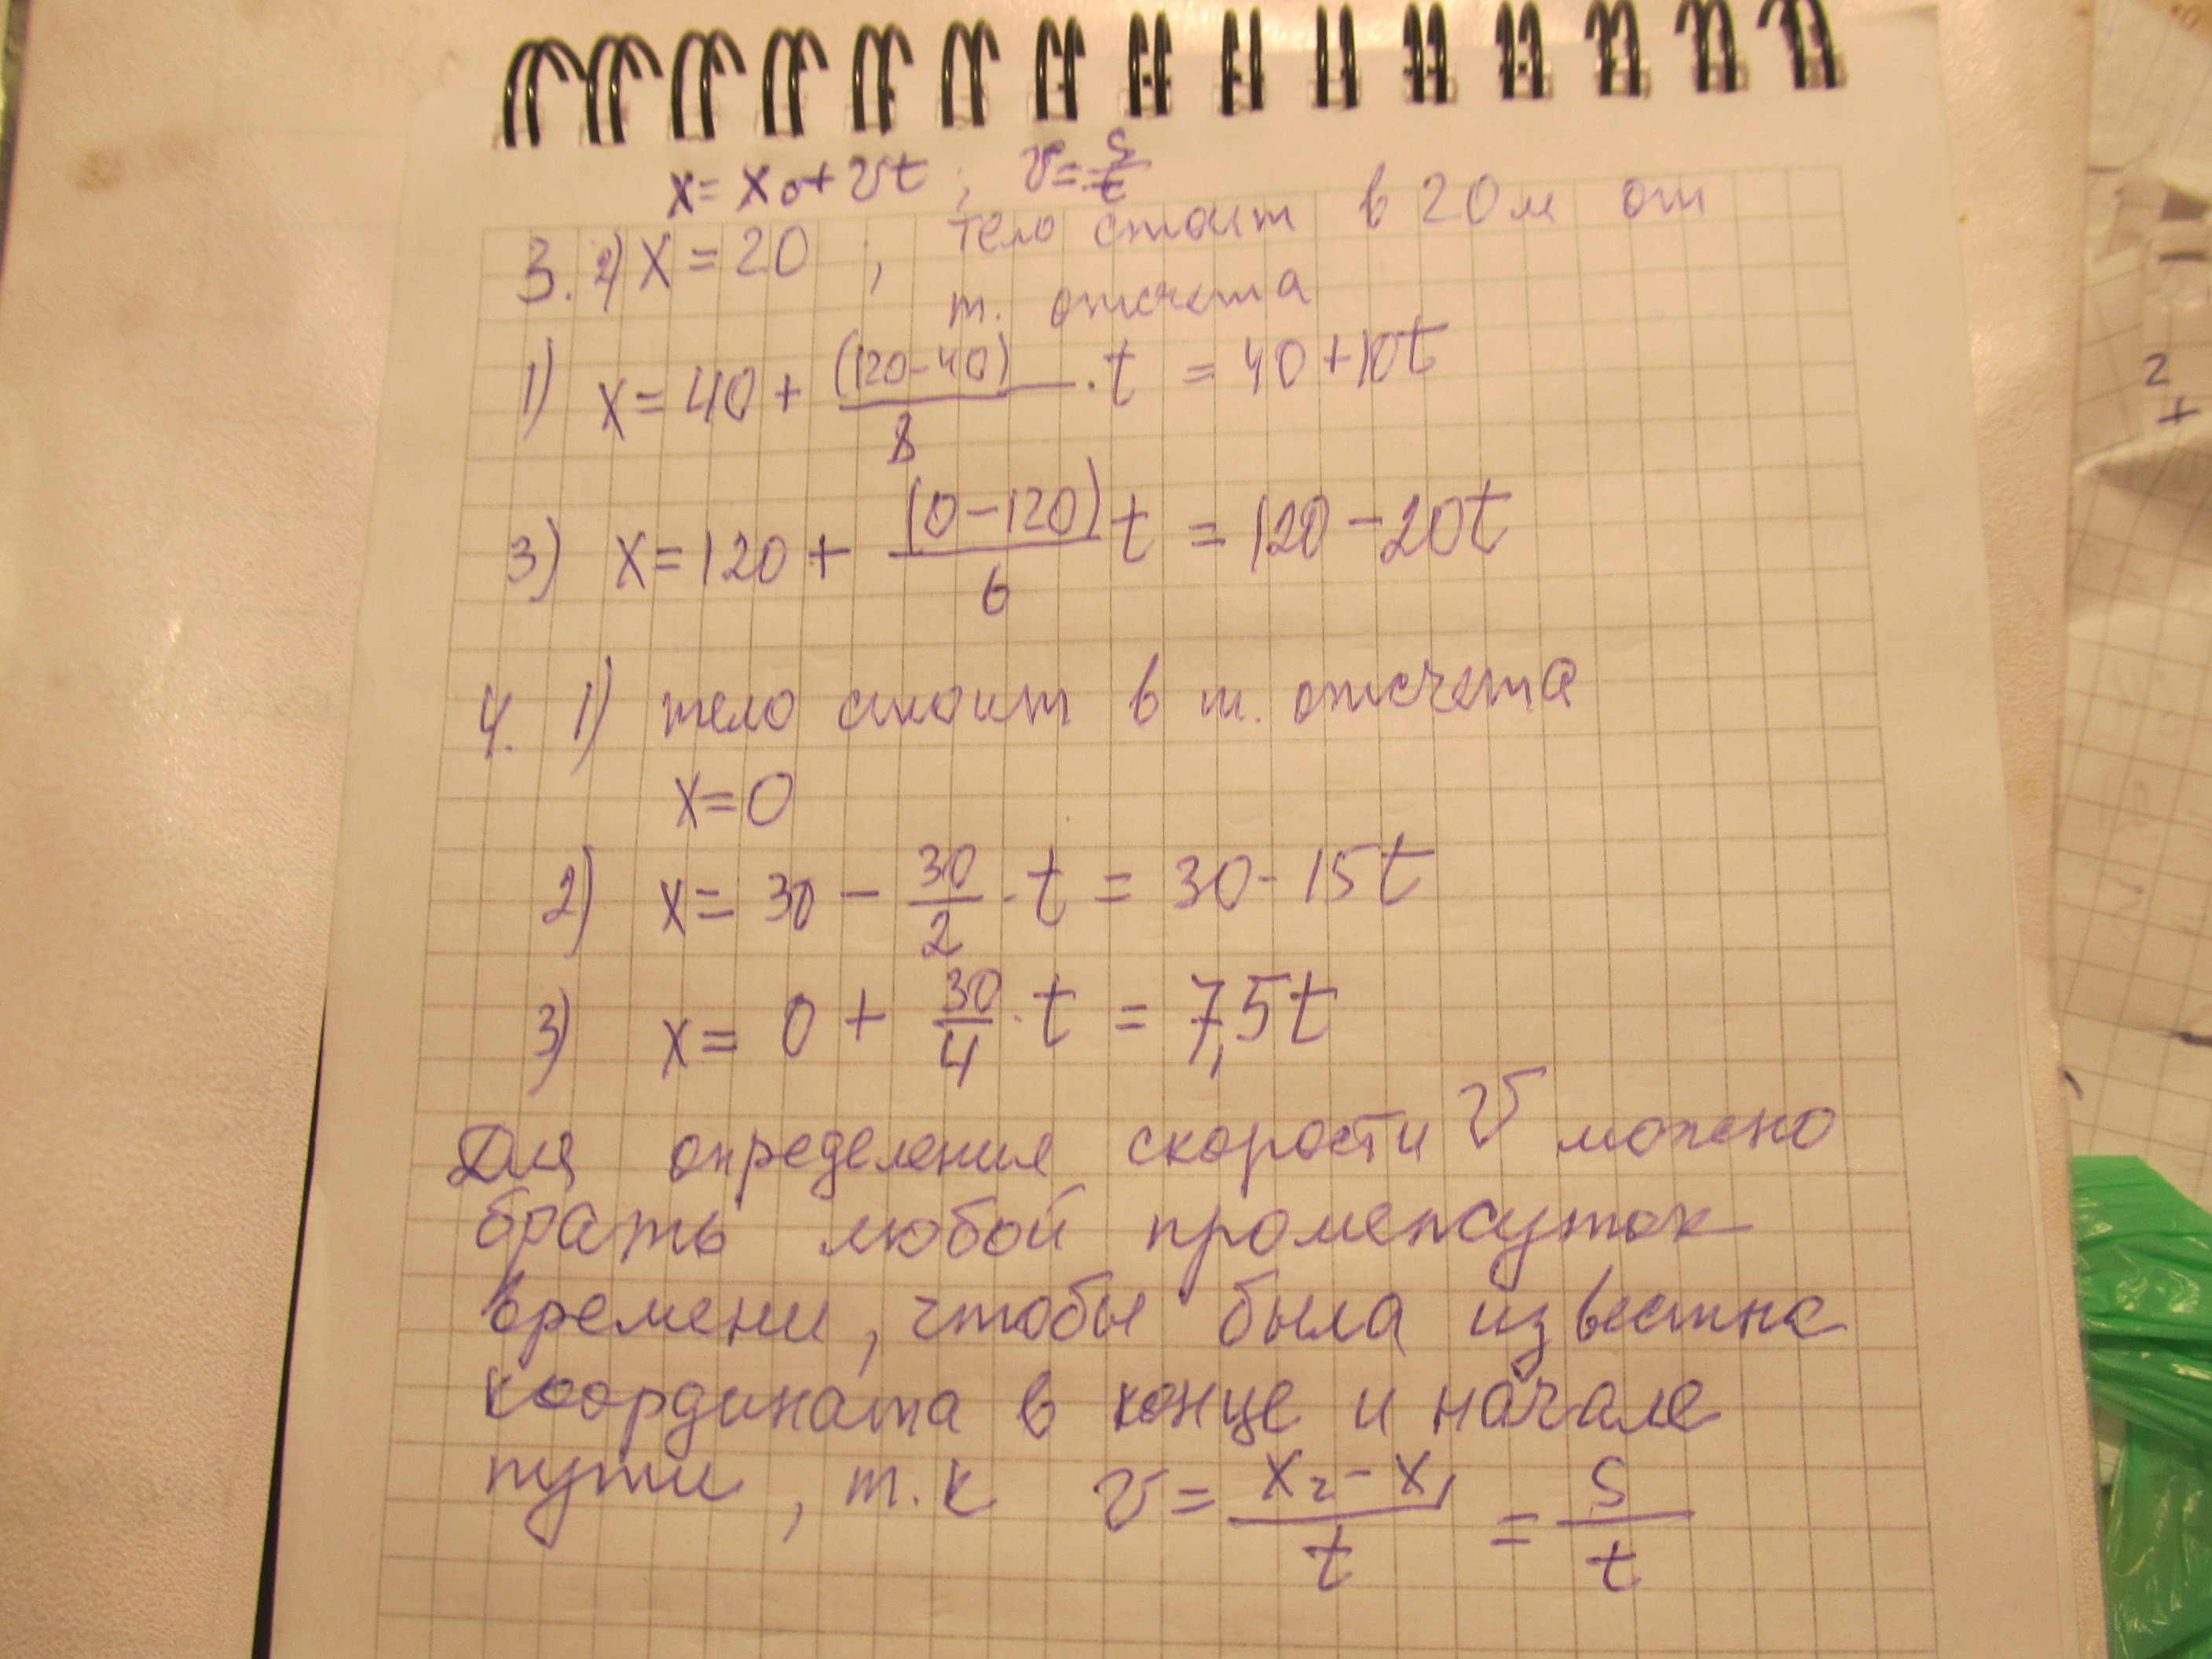 x = x₀ + vt ; v = S/t
3. 2) x = 20 ; тело стоит в 20 м от
т. отсчета
1) x = 40 + (120-40)/8 · t = 40 + 10t
3) x = 120 + (0-120)/6 t = 120 - 20t
4. 1) тело стоит в т. отсчета
x = 0
2) x = 30 - 30/2 · t = 30 - 15t
3) x = 0 + 30/4 · t = 7,5t
Для определения скорости v можно
брать любой промежуток
времени, чтобы была известна
координата в конце и начале
пути, т.к v = (x₂ - x₁)/t = S/t
2
+